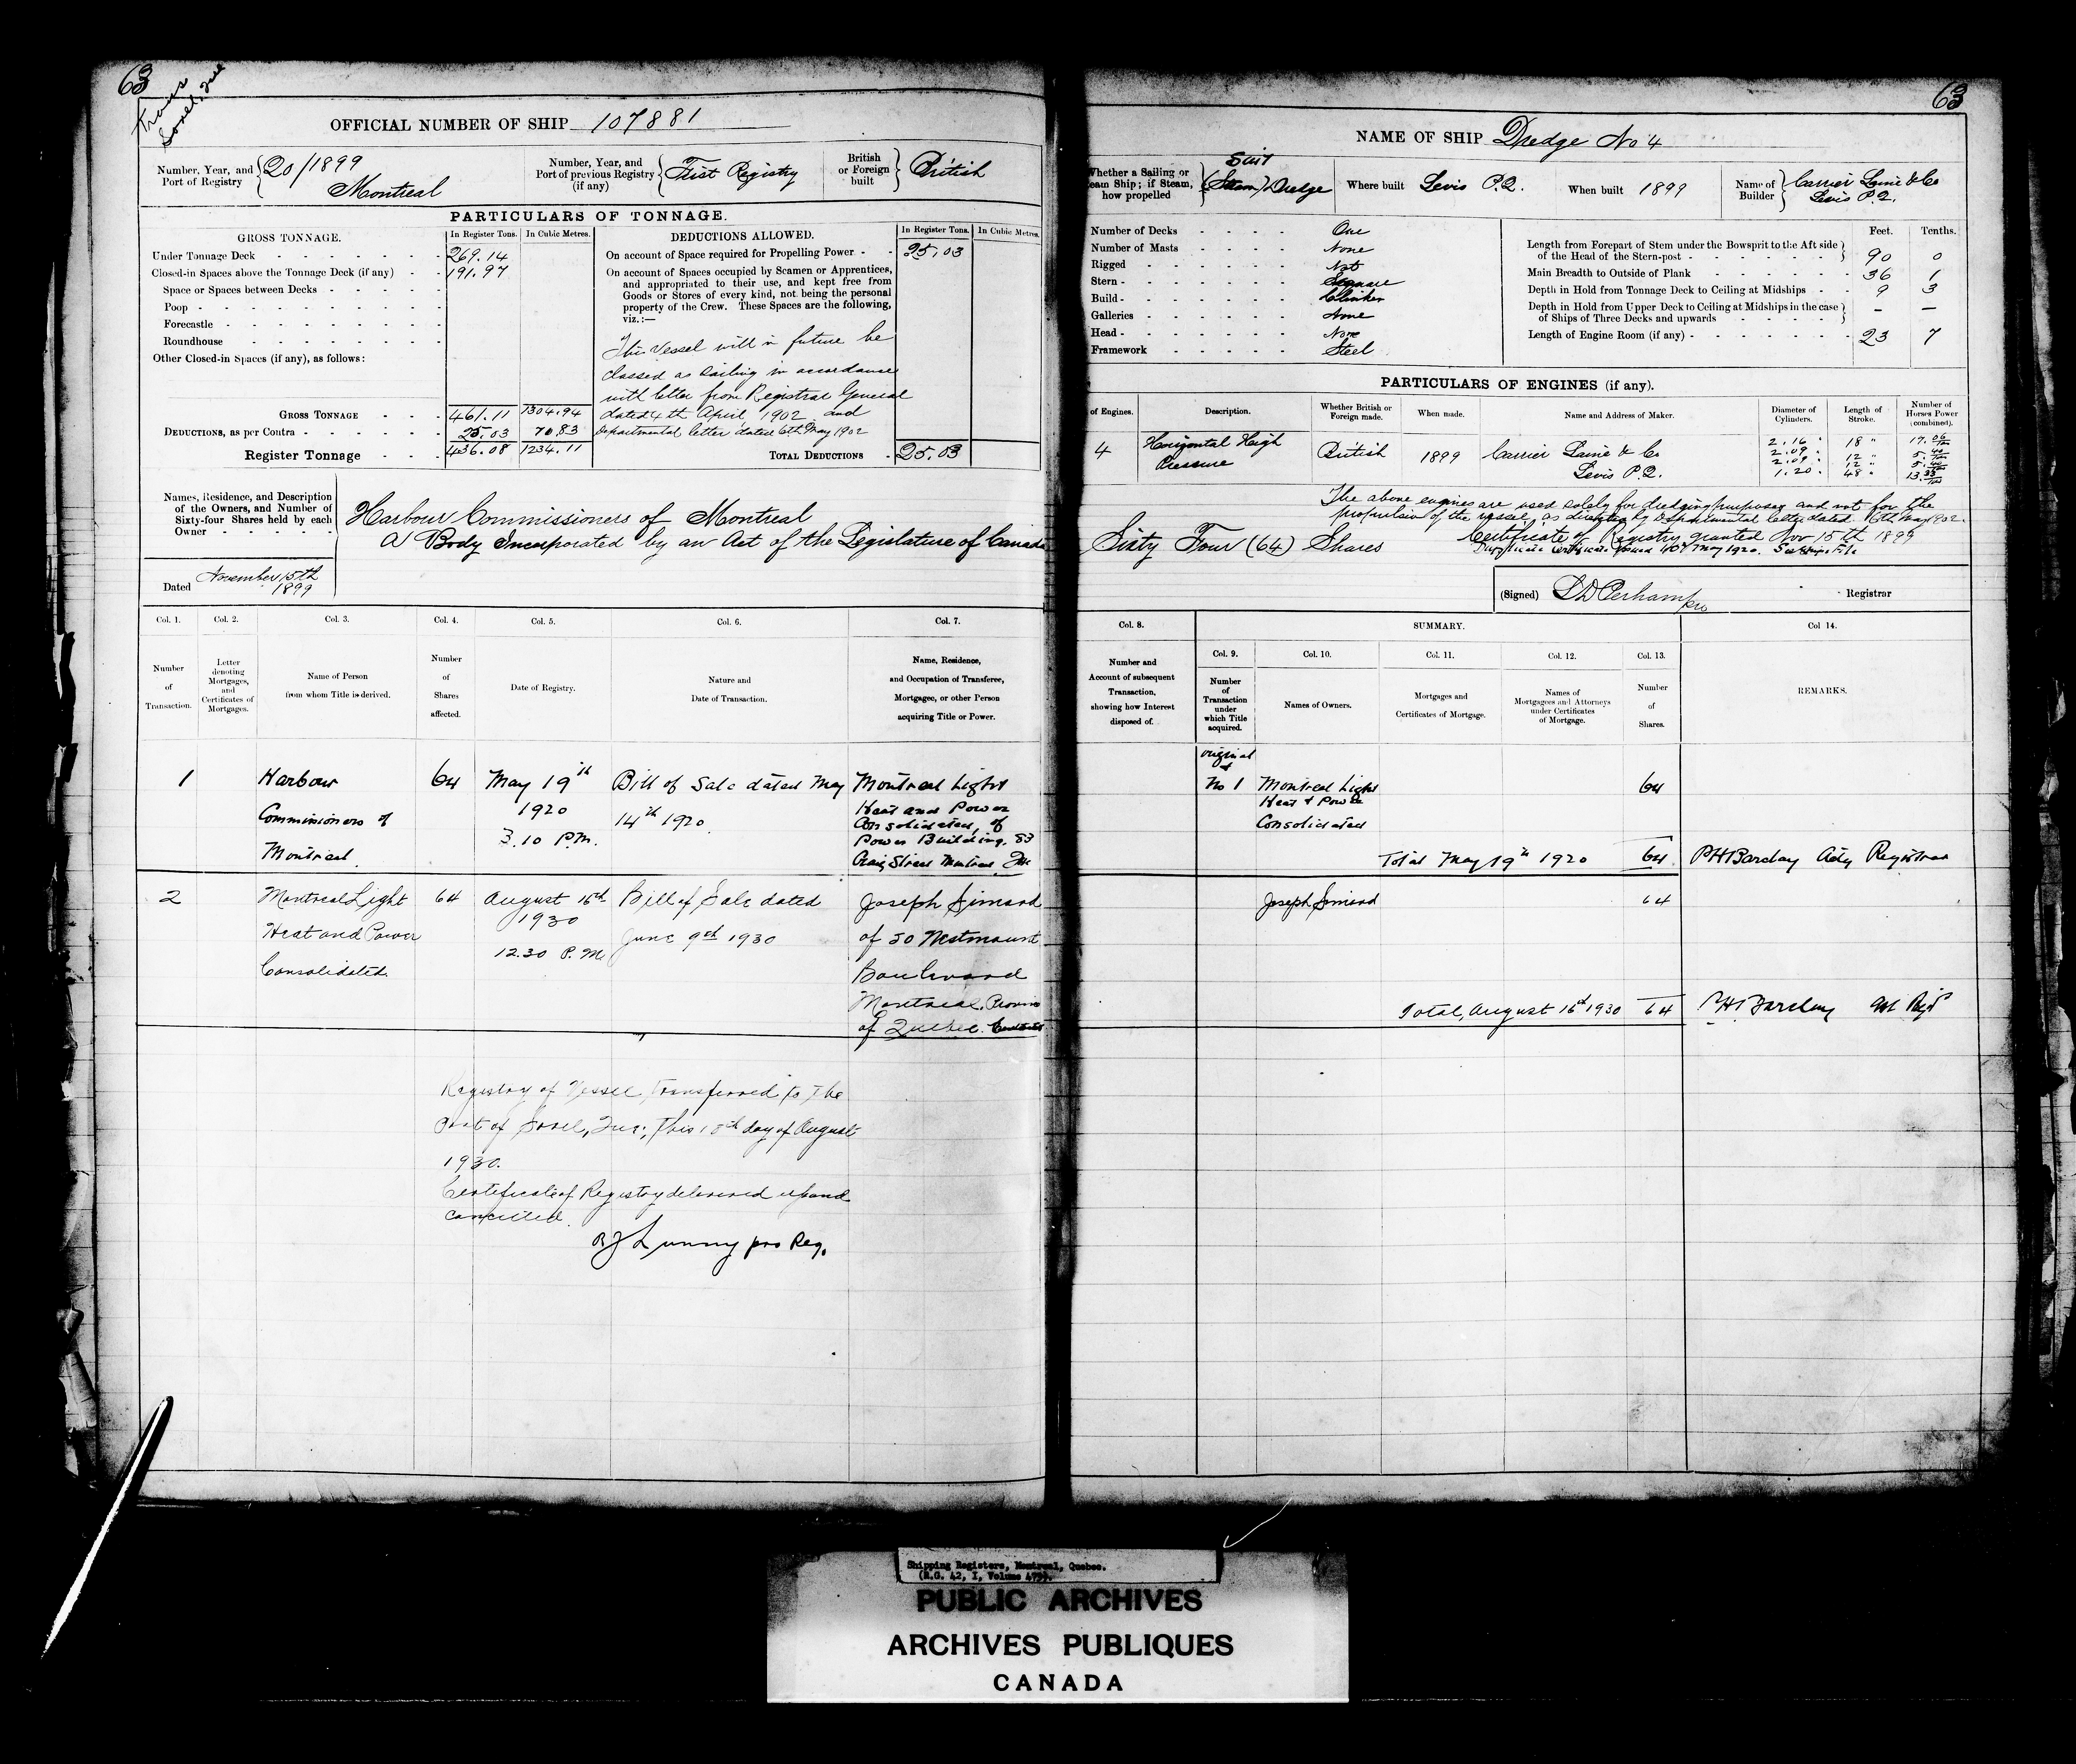 63
Trans
Sorel, Que
OFFICIAL NUMBER OF SHIP 107881
Number, Year, and Port of Registry
20/1899
Montreal
Number, Year, and Port of previous Registry (if any)
First Registry
British or Foreign built
British
PARTICULARS OF TONNAGE.
GROSS TONNAGE. In Register Tons. In Cubic Metres.
Under Tonnage Deck 269.14
Closed-in Spaces above the Tonnage Deck (if any) 191.97
Space or Spaces between Decks
Poop
Forecastle
Roundhouse
Other Closed-in Spaces (if any), as follows:
GROSS TONNAGE 461.11 1304.94
DEDUCTIONS, as per Contra 25.03 70.83
Register Tonnage 436.08 1234.11
DEDUCTIONS ALLOWED. In Register Tons. In Cubic Metres.
On account of Space required for Propelling Power 25.03
On account of Spaces occupied by Seamen or Apprentices,
and appropriated to their use, and kept free from
Goods or Stores of every kind, not being the personal
property of the Crew. These Spaces are the following,
viz.:—
This Vessel will in future be
classed as Sailing in accordance
with letter from Registrar General
dated 4th April 1902 and
Departmental letter dated 6th May 1902
TOTAL DEDUCTIONS 25.03
Names, Residence, and Description
of the Owners, and Number of
Sixty-four Shares held by each
Owner
Harbour Commissioners of Montreal
A Body Incorporated by an Act of the Legislature of Canada
Dated November 15th
1899
Col. 1. Col. 2. Col. 3. Col. 4. Col. 5. Col. 6. Col. 7.
Number of Transaction.
Letter denoting Mortgages, and Certificates of Mortgages.
Name of Person from whom Title is derived.
Number of Shares affected.
Date of Registry.
Nature and Date of Transaction.
Name, Residence, and Occupation of Transferee, Mortgagee, or other Person acquiring Title or Power.
1
Harbour
Commissioners of
Montreal
64
May 19th
1920
3.10 P.M.
Bill of Sale dated May
14th 1920
Montreal Light
Heat and Power
Consolidated, of
Power Building, 83
Craig Street Montreal Que
2
Montreal Light
Heat and Power
Consolidated
64
August 16th
1930
12.30 P.M.
Bill of Sale dated
June 9th 1930
Joseph Simard
of 50 Westmount
Boulevard
Montreal, Province
of Quebec.
Registry of Vessel Transferred to the
Port of Sorel, Que; this 18th day of August
1930.
Certificate of Registry delivered up and
cancelled.
Lunny pro Reg.
63
NAME OF SHIP Dredge No 4
Whether a Sailing or
eam Ship; if Steam,
how propelled
Sail
(Steam) Dredge
Where built Levis P.Q.
When built 1899
Name of Builder
Carrier Lainé & Co
Levis P.Q.
Number of Decks One
Number of Masts None
Rigged Not
Stern Square
Build Clinker
Galleries None
Head None
Framework Steel
Feet. Tenths.
Length from Forepart of Stem under the Bowsprit to the Aft side
of the Head of the Stern-post 90 0
Main Breadth to Outside of Plank 36 1
Depth in Hold from Tonnage Deck to Ceiling at Midships 9 3
Depth in Hold from Upper Deck to Ceiling at Midships in the case
of Ships of Three Decks and upwards — —
Length of Engine Room (if any) 23 7
PARTICULARS OF ENGINES (if any).
of Engines. Description. Whether British or Foreign made. When made. Name and Address of Maker. Diameter of Cylinders. Length of Stroke. Number of Horses Power (combined).
4
Horizontal High
Pressure
British
1899
Carrier Lainé & Co
Levis P.Q.
2.16 " 18 "
2.09 " 12 "
2.09 " 12 "
1.20 " 48 "
The above engines are used solely for dredging purposes and not for the
propulsion of the vessel, as directed by Departmental letter dated 16th May 1902.
Sixty Four (64) Shares
Certificate of Registry granted Nov 15th 1899
(Signed) Registrar
Col. 8. SUMMARY. Col 14.
Number and
Account of subsequent
Transaction,
showing how Interest
disposed of.
Col. 9. Col. 10. Col. 11. Col. 12. Col. 13.
Number of Transaction under which Title acquired.
Names of Owners.
Mortgages and Certificates of Mortgage.
Names of Mortgagees and Attorneys under Certificates of Mortgage.
Number of Shares.
REMARKS.
original
No 1
Montreal Light
Heat & Power
Consolidated
64
Total May 19th 1920 64 P H Barclay Actg Registrar
Joseph Simard 64
Total, August 16th 1930 64 P H Barclay
Shipping Registers, Montreal, Quebec.
(R.G. 42, I, Volume
PUBLIC ARCHIVES
ARCHIVES PUBLIQUES
CANADA